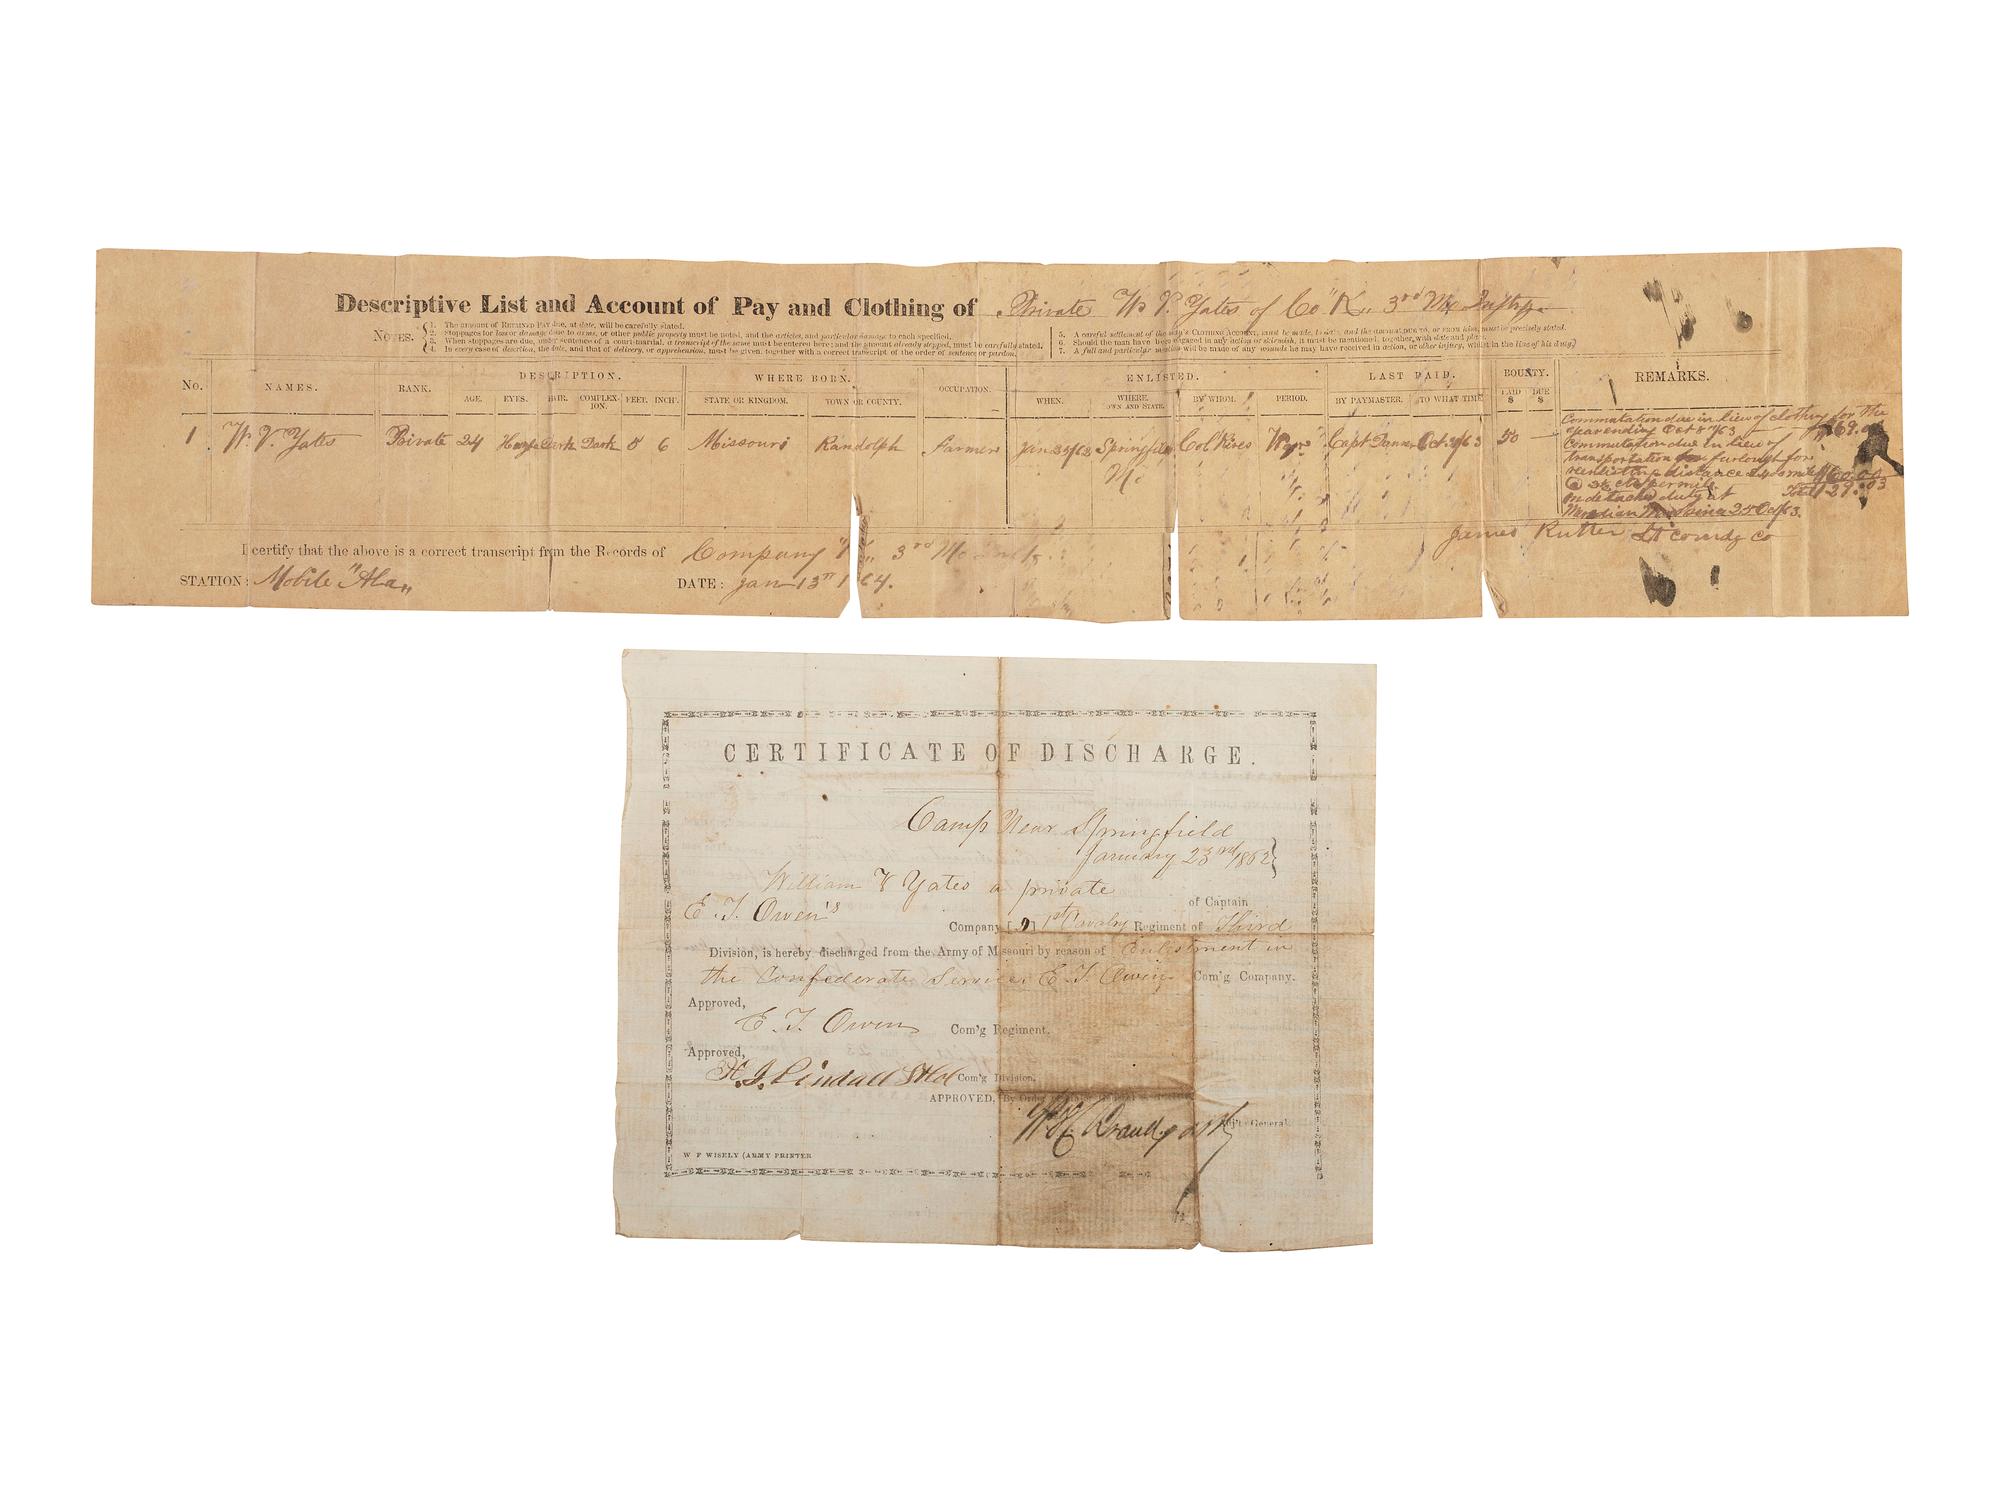 Descriptive List and Account of Pay and Clothing of Private W. V. Yates of Co "K" 3rd Mo Inftry
NOTES.
1. The amount of RETAINED PAY due, at date, will be carefully stated.
2. Stoppages for loss or damage done to arms, or other public property must be noted, and the articles, and particular damage to each specified.
3. When stoppages are due, under sentence of a court-martial, a transcript of the same must be entered here; and the amount already stopped, must be carefully stated.
4. In every case of desertion, the date, and that of delivery, or apprehension, must be given, together with a correct transcript of the order of sentence or pardon.
5. A careful settlement of the man's CLOTHING ACCOUNT, must be made, to date, and the amount DUE TO, or FROM him, must be precisely stated.
6. Should the man have been engaged in any action or skirmish, it must be mentioned, together, with date and place.
7. A full and particular mention will be made of any wounds he may have received in action, or other injury, whilst in the line of his duty.
No. NAMES. RANK. DESCRIPTION. WHERE BORN. OCCUPATION. ENLISTED. LAST PAID. BOUNTY. REMARKS.
AGE. EYES. HAIR. COMPLEXION. FEET. INCH'. STATE OR KINGDOM. TOWN OR COUNTY. WHEN. WHERE. TOWN AND STATE. BY WHOM. PERIOD. BY PAYMASTER. TO WHAT TIME PAID $ DUE $
1 W. V. Yates Private 24 Hazel Dark Dark 5 6 Missouri Randolph Farmer Jan 23/62 Springfield Mo Col Rives War Capt Tanner Oct 31/63 50
Commutation due in lieu of clothing for the
year ending Oct 8 /63 $69.
Commutation due in lieu of
transportation furlough for
reenlisting distance 2400 mile $60.00
@ 2½ cts per mile Total 129.03
on detached duty at
Meridian Miss since 25 Oct/63.
James Rutter Lt comdg co
I certify that the above is a correct transcript from the Records of Company "K" 3rd Mo Inft.
STATION: Mobile "Ala" DATE: Jan 13th 1864.
CERTIFICATE OF DISCHARGE.
Camp Near Springfield
January 23rd 1862
William V Yates a private of Captain
E. T. Owen's Company [ ] 1st Cavalry Regiment of Third
Division, is hereby discharged from the Army of Missouri by reason of Enlistment in
the Confederate Service. E. T. Owen Com'g Company.
Approved,
E. T. Owen Com'g Regiment.
Approved,
Com'g Division.
APPROVED, By Order of Major General
Adj't General.
W F WISELY (ARMY PRINTER